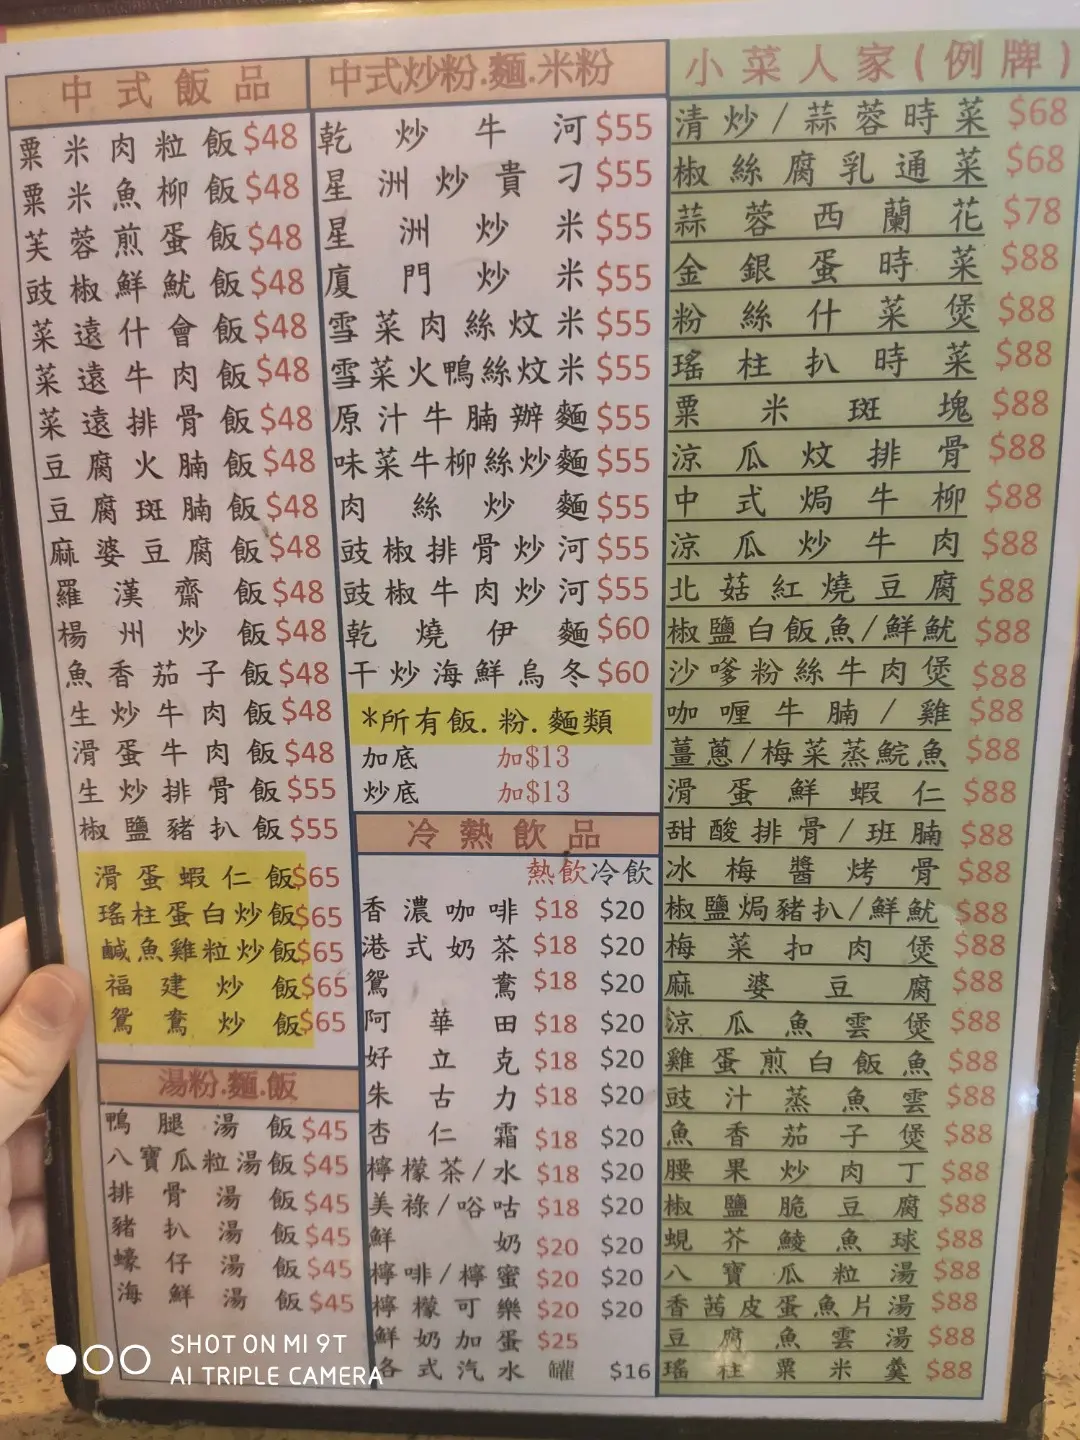 中式飯品
粟米肉粒飯 $48
粟米魚柳飯 $48
芙蓉煎蛋飯 $48
豉椒鮮魷飯 $48
菜遠什會飯 $48
菜遠牛肉飯 $48
菜遠排骨飯 $48
豆腐火腩飯 $48
豆腐斑腩飯 $48
麻婆豆腐飯 $48
羅漢齋飯 $48
楊州炒飯 $48
魚香茄子飯 $48
生炒牛肉飯 $48
滑蛋牛肉飯 $48
生炒排骨飯 $55
椒鹽豬扒飯 $55
滑蛋蝦仁飯 $65
瑤柱蛋白炒飯 $65
鹹魚雞粒炒飯 $65
福建炒飯 $65
鴛鴦炒飯 $65
湯粉.麵.飯
鴨腿湯飯 $45
八寶瓜粒湯飯 $45
排骨湯飯 $45
豬扒湯飯 $45
蠔仔湯飯 $45
海鮮湯飯 $45
中式炒粉.麵.米粉
乾炒牛河 $55
星洲炒貴刁 $55
星洲炒米 $55
廈門炒米 $55
雪菜肉絲炆米 $55
雪菜火鴨絲炆米 $55
原汁牛腩辦麵 $55
味菜牛柳絲炒麵 $55
肉絲炒麵 $55
豉椒排骨炒河 $55
豉椒牛肉炒河 $55
乾燒伊麵 $60
干炒海鮮烏冬 $60
*所有飯.粉.麵類
加底 加$13
炒底 加$13
冷熱飲品
熱飲 冷飲
香濃咖啡 $18 $20
港式奶茶 $18 $20
鴛鴦 $18 $20
阿華田 $18 $20
好立克 $18 $20
朱古力 $18 $20
杏仁霜 $18 $20
檸檬茶/水 $18 $20
美祿/唂咕 $18 $20
鮮奶 $20 $20
檸啡/檸蜜 $20 $20
檸檬可樂 $20 $20
鮮奶加蛋 $25
各式汽水 罐 $16
小菜人家(例牌)
清炒/蒜蓉時菜 $68
椒絲腐乳通菜 $68
蒜蓉西蘭花 $78
金銀蛋時菜 $88
粉絲什菜煲 $88
瑤柱扒時菜 $88
粟米斑塊 $88
涼瓜炆排骨 $88
中式焗牛柳 $88
涼瓜炒牛肉 $88
北菇紅燒豆腐 $88
椒鹽白飯魚/鮮魷 $88
沙嗲粉絲牛肉煲 $88
咖喱牛腩/雞 $88
薑蔥/梅菜蒸鯇魚 $88
滑蛋鮮蝦仁 $88
甜酸排骨/班腩 $88
冰梅醬烤骨 $88
椒鹽焗豬扒/鮮魷 $88
梅菜扣肉煲 $88
麻婆豆腐 $88
涼瓜魚雲煲 $88
雞蛋煎白飯魚 $88
豉汁蒸魚雲 $88
魚香茄子煲 $88
腰果炒肉丁 $88
椒鹽脆豆腐 $88
蜆芥鯪魚球 $88
八寶瓜粒湯 $88
香茜皮蛋魚片湯 $88
豆腐魚雲湯 $88
瑤柱粟米羹 $88
SHOT ON MI 9T
AI TRIPLE CAMERA